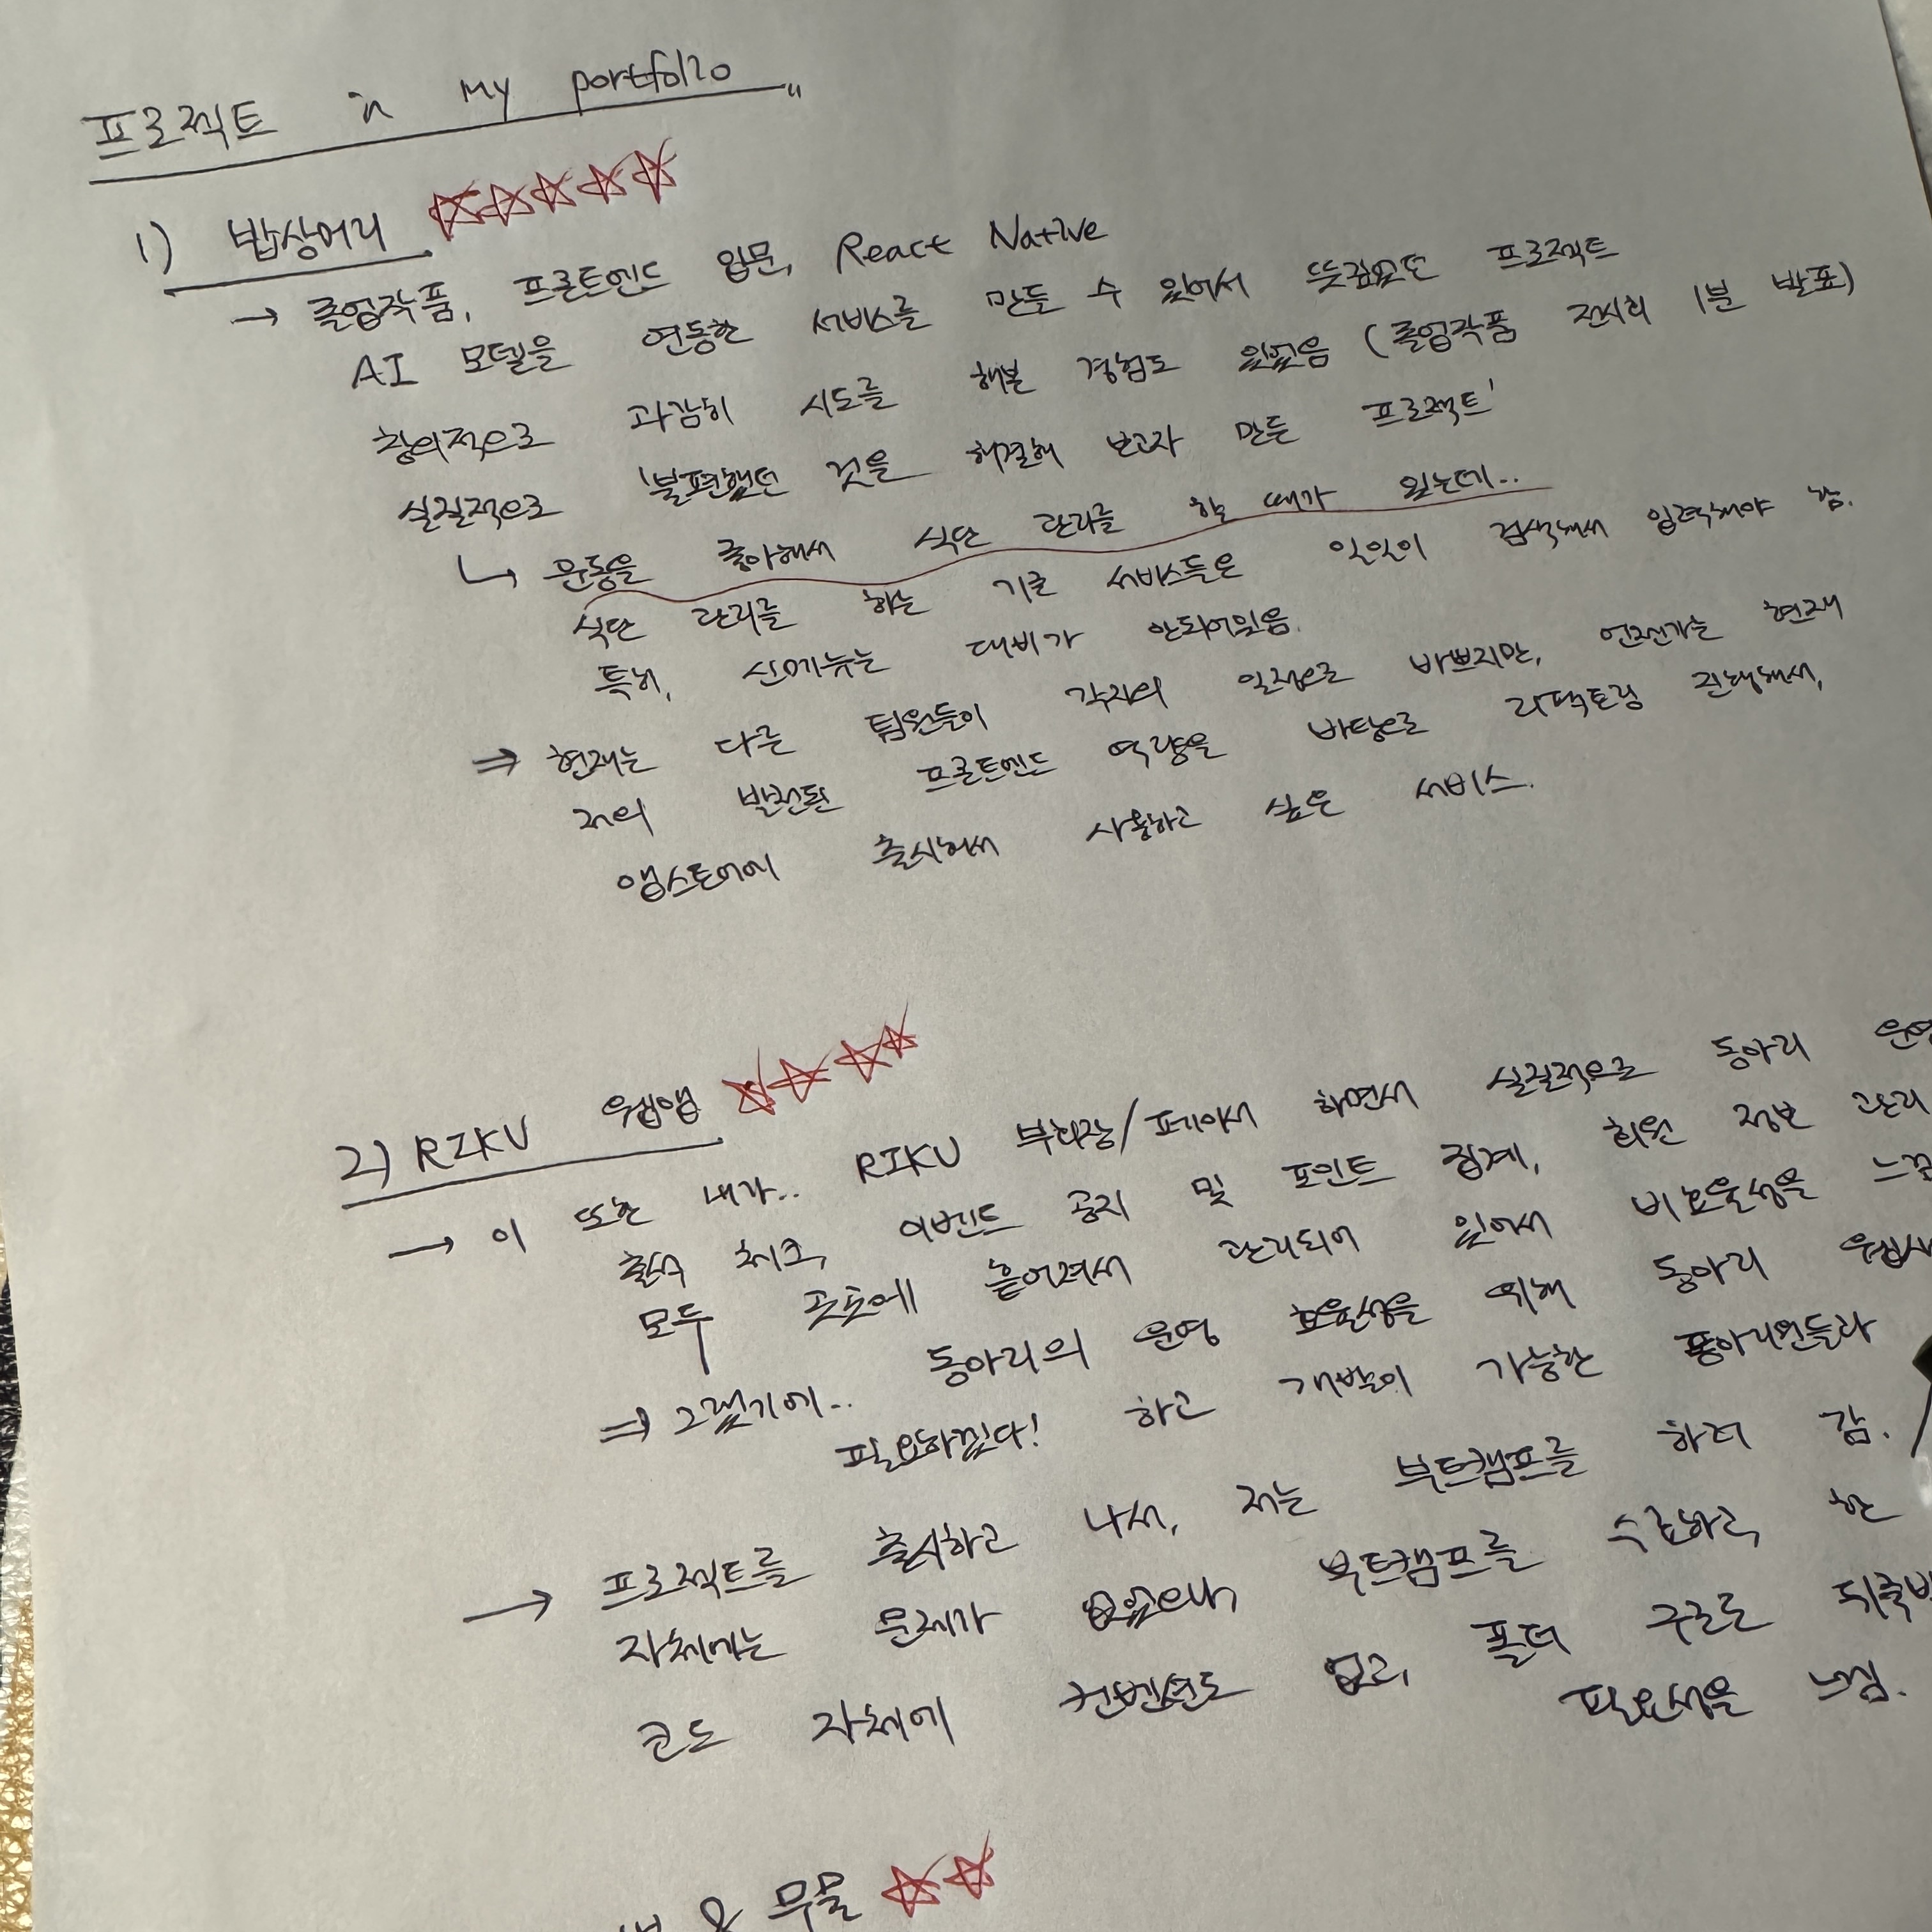 프로젝트 in my portfolio
1) 밥상머리 ☆☆☆☆☆
→ 졸업작품, 프론트엔드 입문, React Native
AI 모델을 연동한 서비스를 만들 수 있어서 뜻깊었던 프로젝트
창의적으로 과감히 시도를 해본 경험도 있었음 (졸업작품 전시회 1분 발표)
실질적으로 '불편했던 것을 해결해 보고자 만든 프로젝트'
↳ 운동을 좋아해서 식단 관리를 할 때가 있는데..
식단 관리를 하는 기존 서비스들은 일일이 검색해서 입력해야 함.
특히, 신메뉴는 대비가 안되어있음.
⇒ 현재는 다른 팀원들이 각자의 일정으로 바쁘지만, 언젠가는 현재
저의 발전된 프론트엔드 역량을 바탕으로 리팩토링 진행해서,
앱스토어에 출시해서 사용하고 싶은 서비스.
2) RIKU 웹앱 ☆☆☆☆
→ 이 또한 내가.. RIKU 부회장/페이서 하면서 실질적으로 동아리
출석 체크, 이벤트 공지 및 포인트 집계, 회원 정보 관리
모두 곳곳에 흩어져서 관리되어 있어서 비효율성을
⇒ 그렇기에.. 동아리의 운영 효율성을 위해 동아리
필요하겠다! 하고 개발이 가능한 동아리원들과
→ 프로젝트를 출시하고 나서, 저는 부트캠프를 하러 감.
자체에는 문제가 없었으나, 부트캠프를 수료하고, 한
코드 자체에 컨벤션도 없고, 폴더 구조도
필요성을 느낌.
& 무물 ☆☆